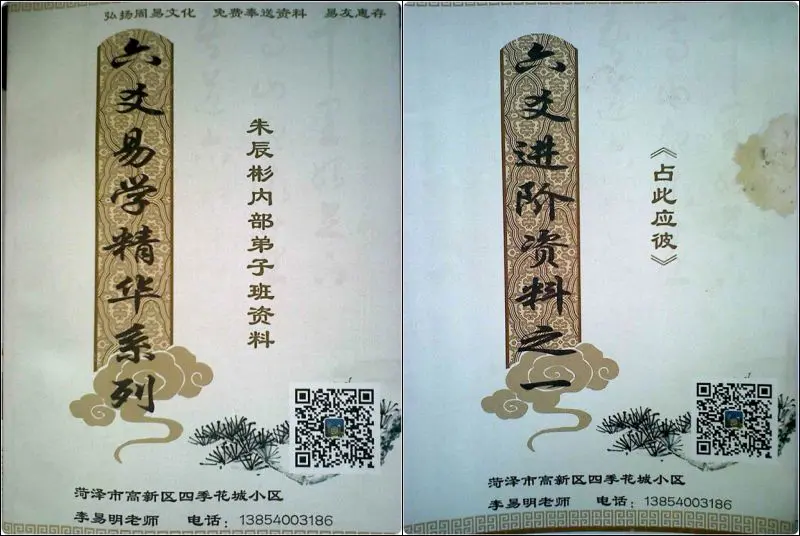 弘扬周易文化 免费奉送资料 易友惠存
六爻易学精华系列
朱辰彬内部弟子班资料
菏泽市高新区四季花城小区
李易明老师 电话：13854003186
六爻进阶资料之一
《占此应彼》
菏泽市高新区四季花城小区
李易明老师 电话：13854003186